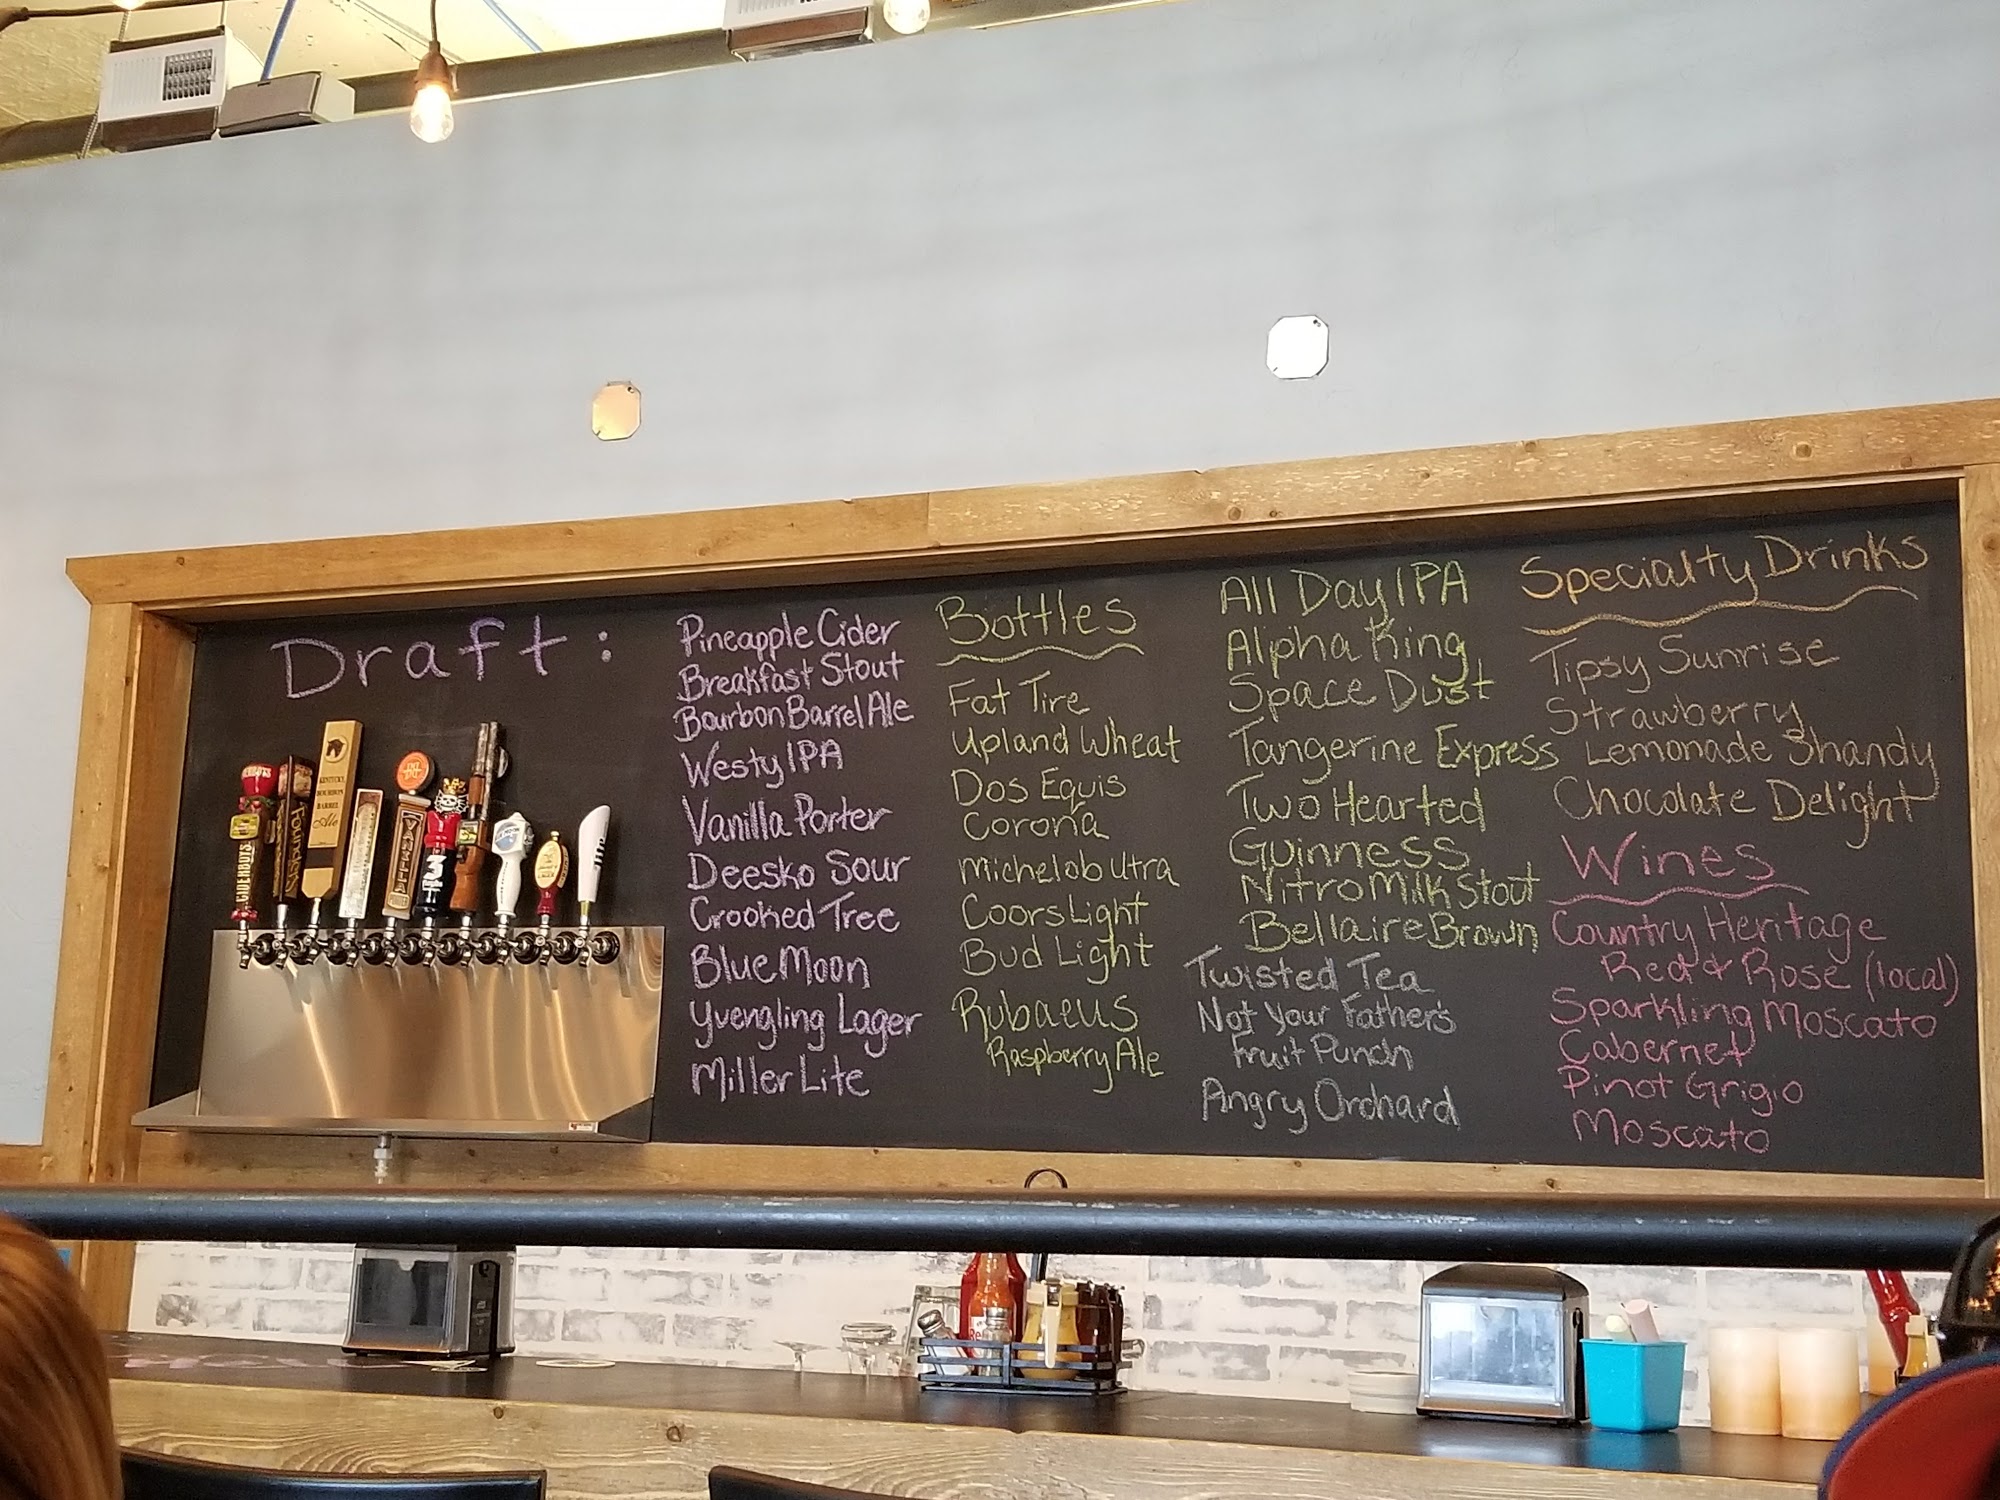 Draft:
Pineapple Cider
Breakfast Stout
Bourbon Barrel Ale
Westy IPA
Vanilla Porter
Deesko Sour
Crooked Tree
Blue Moon
Yuengling Lager
Miller Lite
Bottles
Fat Tire
Upland Wheat
Dos Equis
Corona
Michelob Utra
Coors Light
Bud Light
Rubaeus
Raspberry Ale
All Day IPA
Alpha King
Space Dust
Tangerine Express
Two Hearted
Guinness
Nitro Milk Stout
Bellaire Brown
Twisted Tea
Not Your Father's
Fruit Punch
Angry Orchard
Specialty Drinks
Tipsy Sunrise
Strawberry
Lemonade Shandy
Chocolate Delight
Wines
Country Heritage
Red & Rose (local)
Sparkling Moscato
Cabernet
Pinot Grigio
Moscato
CIDERBOYS
FOUNDERS
KENTUCKY
BOURBON
BARREL
Ale
VANILLA
3